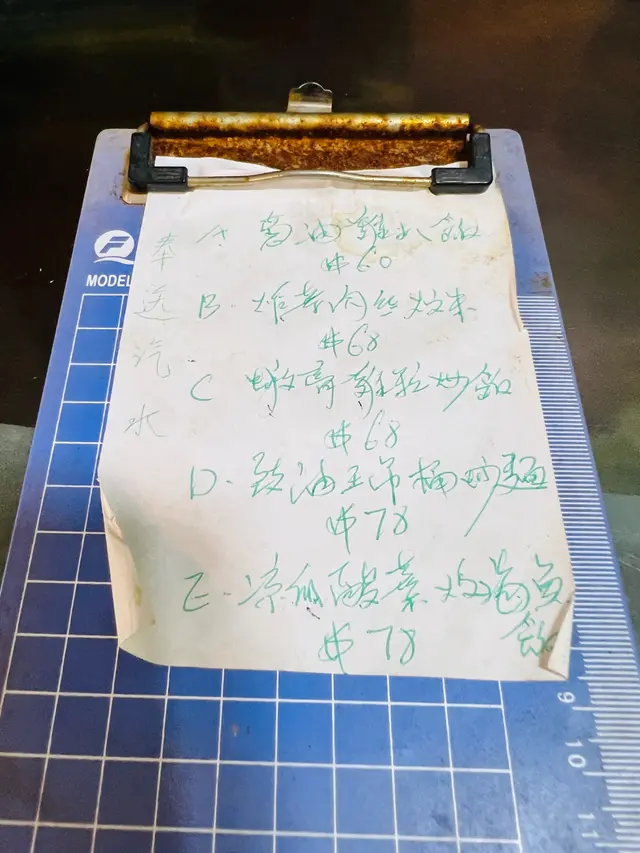 奉送汽水
A 葱油雞扒飯
$60
B. 榨菜肉丝炆米
$68
C 雞粒炒飯
$68
D. 豉油王吊桶炒麵
$78
E. 凉瓜酸菜炆魚
飯
$78
MODEL
9
10
11